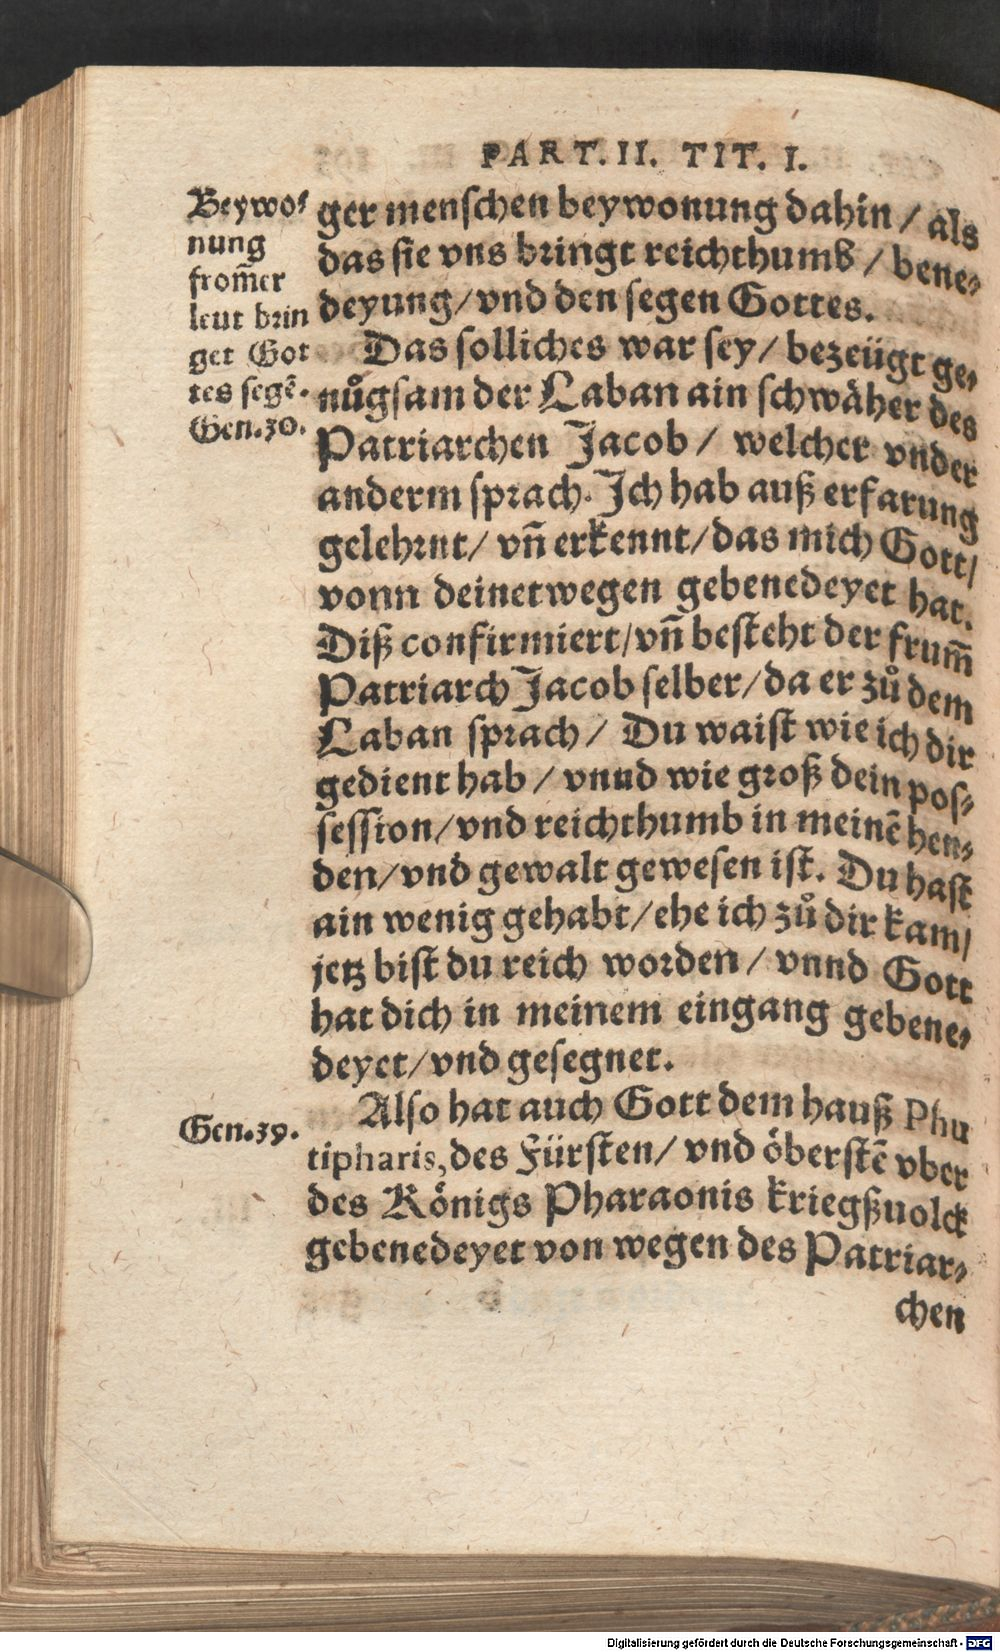 PART. II. TIT. I.
Beywo⸗
nung
from̃er
leut brin
get Got
tes segẽ.
Gen.30.
ger menschen beywonung dahin / als
das sie vns bringt reichthumb / bene⸗
deyung/ vnd den segen Gottes.
Das solliches war sey/ bezeügt ge⸗
nůgsam der Laban ain schwäher des
Patriarchen Jacob / welcher vnder
anderm sprach. Ich hab auß erfarung
gelehrnt/ vñ erkennt/ das mich Gott/
vonn deinetwegen gebenedeyet hat.
Diß confirmiert/ vñ besteht der frum̃
Patriarch Jacob selber/ da er zů dem
Laban sprach / Du waist wie ich dir
gedient hab / vnud wie groß dein pos⸗
session/ vnd reichthumb in meinẽ hen⸗
den/ vnd gewalt gewesen ist. Du hast
ain wenig gehabt/ ehe ich zů dir kam/
jetz bist du reich worden / vnnd Gott
hat dich in meinem eingang gebene⸗
deyet/ vnd gesegnet.
Gen.39.
Also hat auch Gott dem hauß Phu
tipharis, des Fürsten/ vnd öberstẽ vber
des Königs Pharaonis kriegßuolck
gebenedeyet von wegen des Patriar⸗
chen
Digitalisierung gefördert durch die Deutsche Forschungsgemeinschaft - DFG